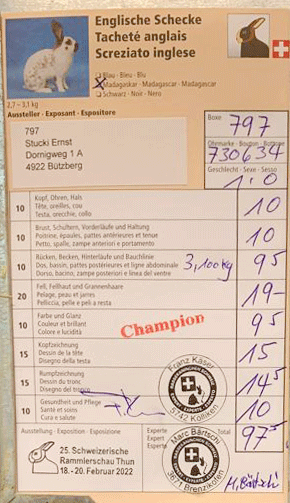 Englische Schecke
Tacheté anglais
Screziato inglese
Blau - Bleu - Blu
X Madagaskar - Madagascar - Madagascar
Schwarz - Noir - Nero
2,7 – 3,1 kg
Aussteller - Exposant - Espositore
Boxe 797
797
Stucki Ernst
Dornigweg 1 A
4922 Bützberg
Ohrmarke - Bouton - Bottone
730634
Geschlecht - Sexe - Sesso
1,0
10 Kopf, Ohren, Hals
Tête, oreilles, cou
Testa, orecchie, collo
10
10 Brust, Schultern, Vorderläufe und Haltung
Poitrine, épaules, pattes antérieures et tenue
Petto, spalle, zampe anteriori e portamento
10
10 Rücken, Becken, Hinterläufe und Bauchlinie
Dos, bassin, pattes postérieures et ligne abdominale
Dorso, bacino, zampe posteriori e linea del ventre
3,100kg 95
20 Fell, Fellhaut und Grannenhaare
Pelage, peau et jarres
Pelliccia, pelle e peli a resta
19-
10 Farbe und Glanz
Couleur et brillant
Colore e lucidità
Champion
95
15 Kopfzeichnung
Dessin de la tête
Disegno della testa
15
15 Rumpfzeichnung
Dessin du tronc
Disegno del tronco
145
10 Gesundheit und Pflege
Santé et soins
Cura e salute
10
Franz Käser
5742 Kölliken
Ausstellung - Exposition - Esposizione
Experte
Expert
Esperto
Total
975
Marc Bärtschi
3671 Brenzikofen
25. Schweizerische
Rammlerschau Thun
18. - 20. Februar 2022
M. Bärtschi